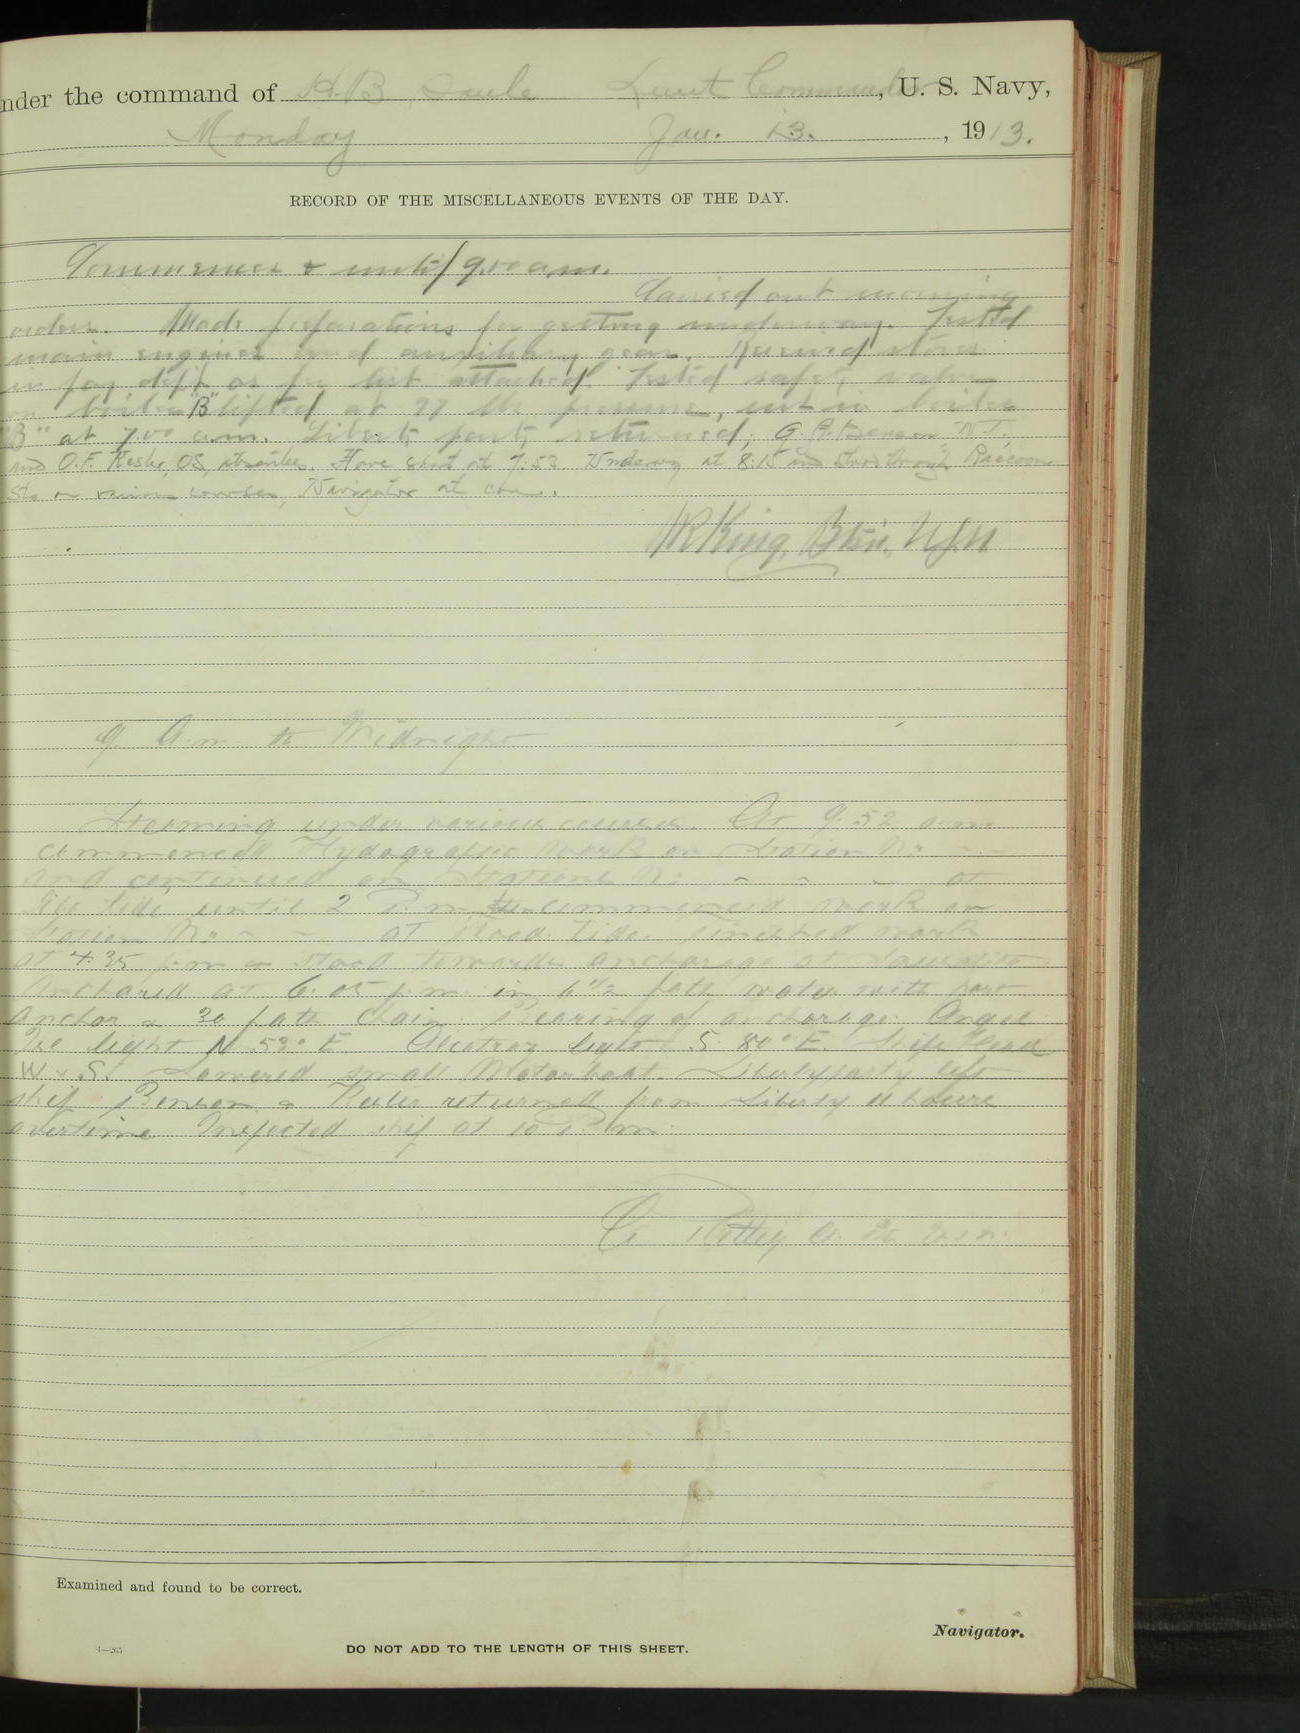 nder the command of H.B. Soule Lieut Commander, U. S. Navy,
Monday Jan. 13. , 1913.
RECORD OF THE MISCELLANEOUS EVENTS OF THE DAY.
Commences & until 9.00 a.m.
Carried out morning
orders. Made preparations for getting underway. Tested
main engines and auxiliary gear. Received stores
in pay dept as per list attached. Tested safety valve
on boiler "B" lifted at 97 lbs pressure, cut in boiler
"B" at 7.00 a.m. Liberty party returned, G. A. Benson,
and O.F. Kesler, OS, absentees. Hove short at 7:53 Underway at 8:15 and stood through Raccoon
Sts on various courses, Navigator at con.
WR King, Btsn, U.S.N
9. A.m. to Midnight
Steaming under various courses. At 9.52 a.m.
commenced Hydrographic work on Station No - -
and continued on Stations No - - - at
Ebb tide until 2 P.m. commenced work on
Station No - - at flood tide. Finished work
at 4.35 p.m & stood towards anchorage at Sausalito
Anchored at 6.05 p.m. in 6 1/2 fath water with port
anchor & 30 fath chain. Bearing of anchorage: Angel
Isl light N 53° E Alcatraz light S 80° E. Ships Head
W x S. Lowered small Motorboat. Liberty party left
ship. Benson & Kesler returned from Liberty 11 hours
overtime Inspected ship at 10 P.m.
Examined and found to be correct.
Navigator.
DO NOT ADD TO THE LENGTH OF THIS SHEET.